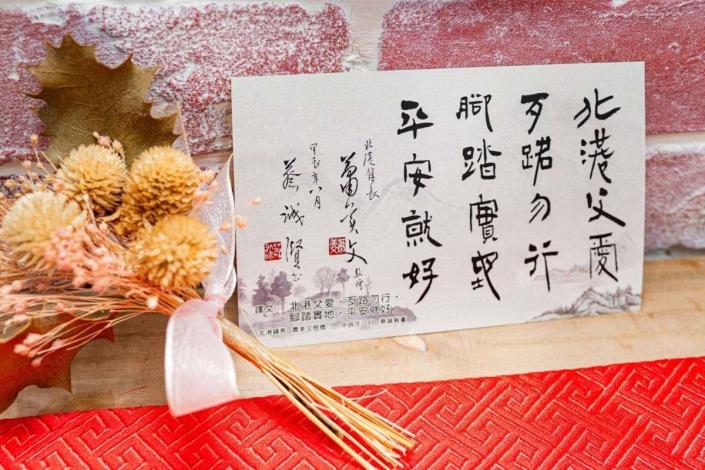 北港父愛
歹路勿行
腳踏實地
平安就好
北港鎮長
蕭美文敬贈
甲辰年八月
蔡誠賢書
譯文：北港父愛，歹路勿行，
腳踏實地，平安就好。
北港鎮長 蕭美文敬贈 甲辰年八月 蔡誠賢書